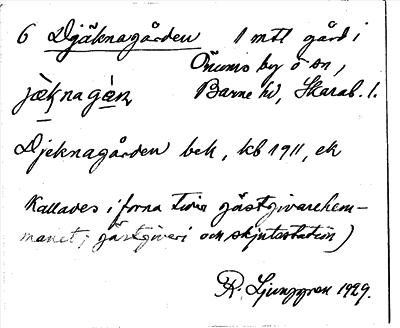 6 Djäknagården 1 mtl gård i
Önums by o sn,
jæknagån Barne hd, Skarab. l.
Djeknagården bek, kb 1911, ek
Kallades i forna tider gästgivarehem-
manet, gästgiveri och skjutsstation)
R. Ljunggren 1929.